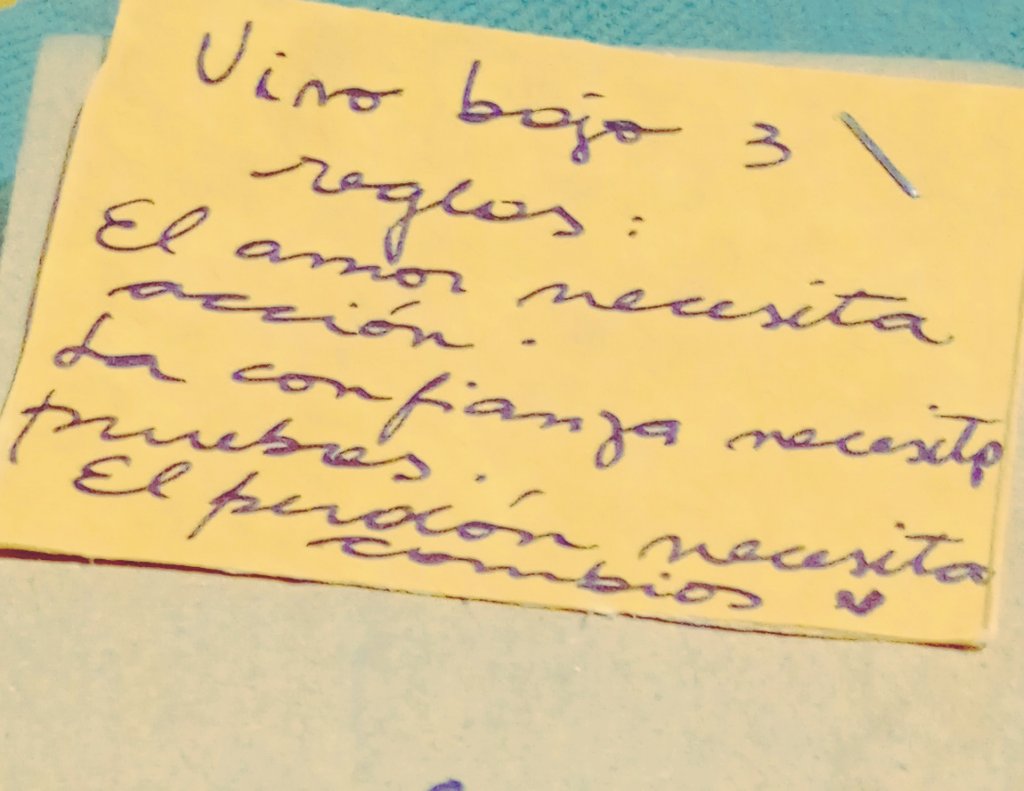 Vivo bajo 3
reglas:
El amor necesita
acción.
La confianza necesita
pruebas.
El perdón necesita
cambios